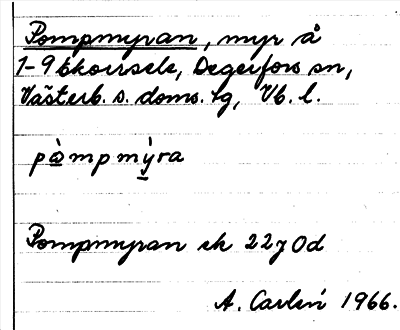 Pompmyran, myr å
1-9 Ekorrsele, Degerfors sn,
Västerb. s. doms. lg, Vb. l.
pòmpmý̖ra
Pompmyran ek 22 J 0d
A. Carlén 1966.